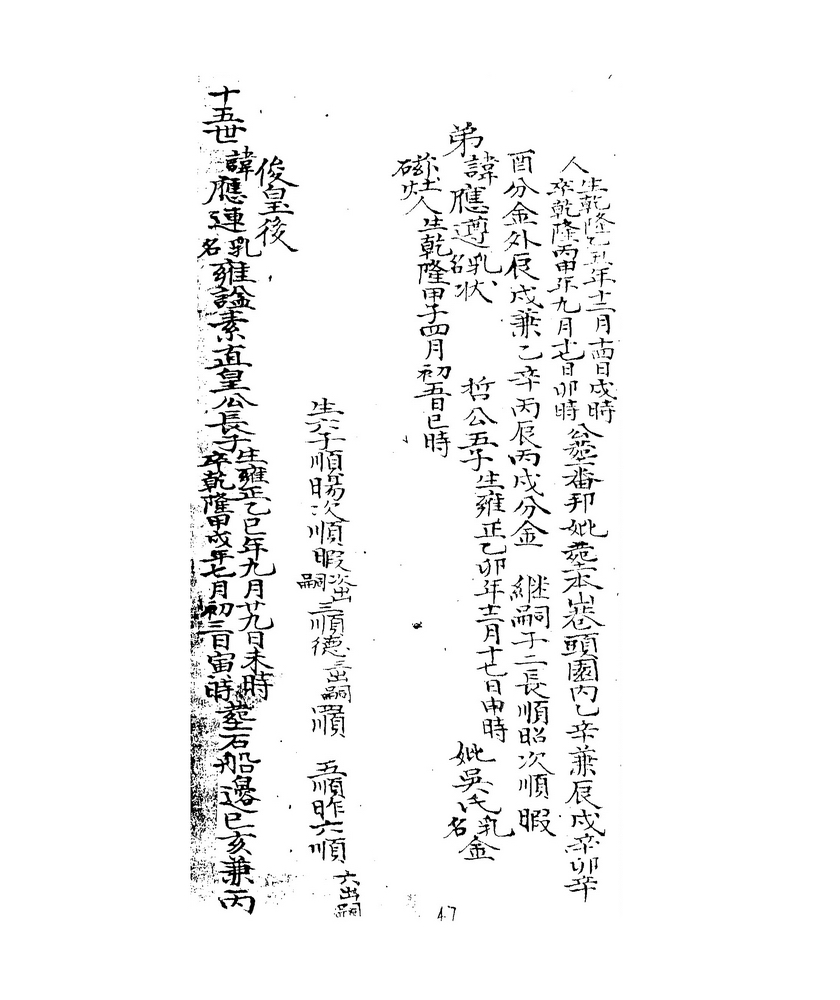 人生乾隆乙丑年十二月十四日戌時
卒乾隆丙申年九月十七日卯時
公葬番邦妣葬本山巷頭園內乙辛兼辰戌辛卯辛
酉分金外辰戌兼乙辛丙辰丙戌分金 継嗣子二長順昭次順暇
弟諱應遵乳名状 哲公五子生雍正乙卯年十二月十七日申時 妣吳氏乳名金
磁灶人生乾隆甲子四月初五日巳時
生六子順昜次順暇次出嗣三順德三出嗣四順 五順昨六順 六出嗣
俊皇後
十五世諱應連乳名雍諡素直皇公長子生雍正乙巳年九月廿九日未時
卒乾隆甲戌年七月初三日寅時
葬石船邊巳亥兼丙
47